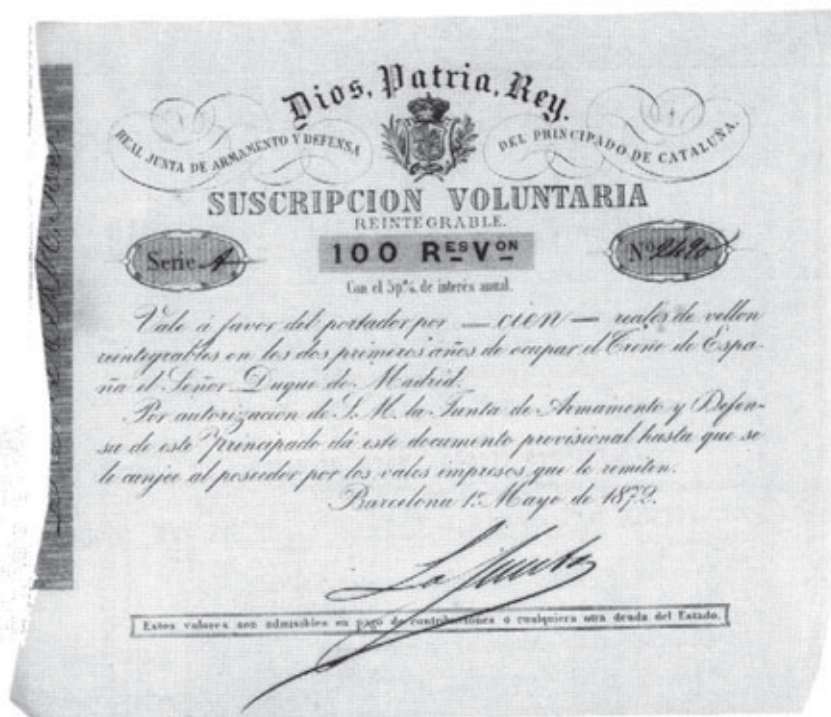 Dios, Patria, Rey.
REAL JUNTA DE ARMAMENTO Y DEFENSA
DEL PRINCIPADO DE CATALUÑA.
SUSCRIPCION VOLUNTARIA
REINTEGRABLE.
Serie A
100 RES VON
Nº 2420
Con el 5 p% de interés anual.
Vale á favor del portador por — CIEN — reales de vellon
reintegrables en los dos primeros años de ocupar el Trono de Espa-
ña el Señor Duque de Madrid.
Por autorizacion de S. M. la Junta de Armamento y Defen-
sa de este Principado dá este documento provisional hasta que se
le canjee al poseedor por los vales impresos que le remiten.
Barcelona 1º Mayo de 1872.
La Junta
Estos valores son admisibles en pago de contribuciones ó cualquiera otra deuda del Estado.